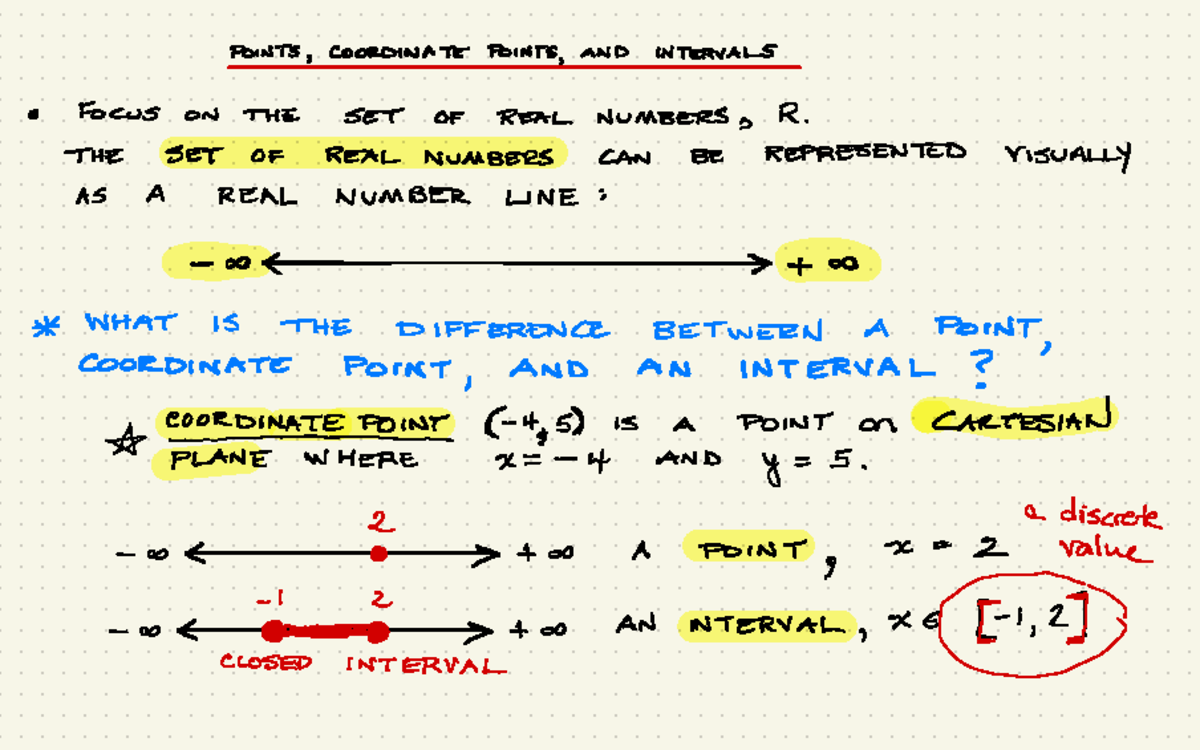 POINTS, COORDINATE POINTS, AND INTERVALS
• FOCUS ON THE SET OF REAL NUMBERS, R.
THE SET OF REAL NUMBERS CAN BE REPRESENTED VISUALLY
AS A REAL NUMBER LINE:
- ∞ + ∞
* WHAT IS THE DIFFERENCE BETWEEN A POINT,
COORDINATE POINT, AND AN INTERVAL?
☆ COORDINATE POINT (-4,5) IS A POINT on CARTESIAN
PLANE WHERE x = -4 AND y = 5.
2
a discrete
value
- ∞ + ∞ A POINT, x = 2
-1 2
- ∞ + ∞ AN INTERVAL, x ∈ [-1, 2]
CLOSED INTERVAL